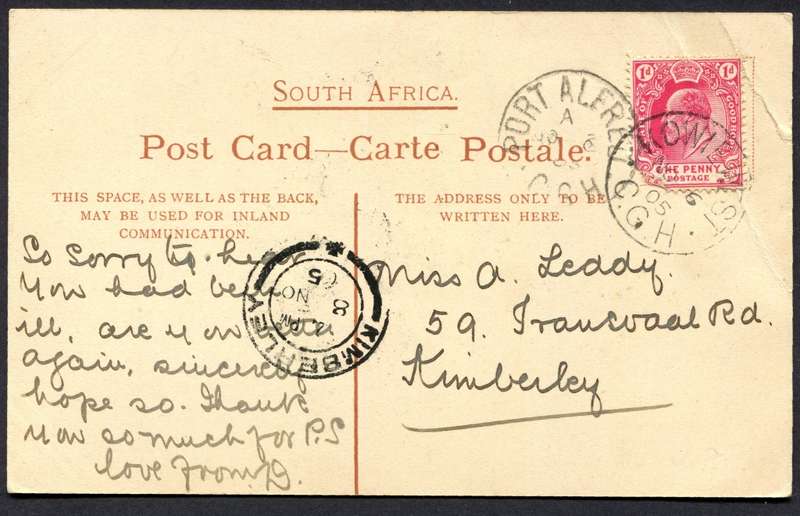 SOUTH AFRICA.
Post Card—Carte Postale.
THIS SPACE, AS WELL AS THE BACK,
MAY BE USED FOR INLAND
COMMUNICATION.
THE ADDRESS ONLY TO BE
WRITTEN HERE.
So sorry to hear
you had been
ill, are you
again, sincerely
hope so. Thank
you so much for P.S
love from D.
Miss A. Leddy.
59. Transvaal Rd.
Kimberley
1d 1d
ONE PENNY
POSTAGE
PORT ALFRED
A
C.G.H
05
C.G.H.
KIMBERLEY
8
NO
5
PM